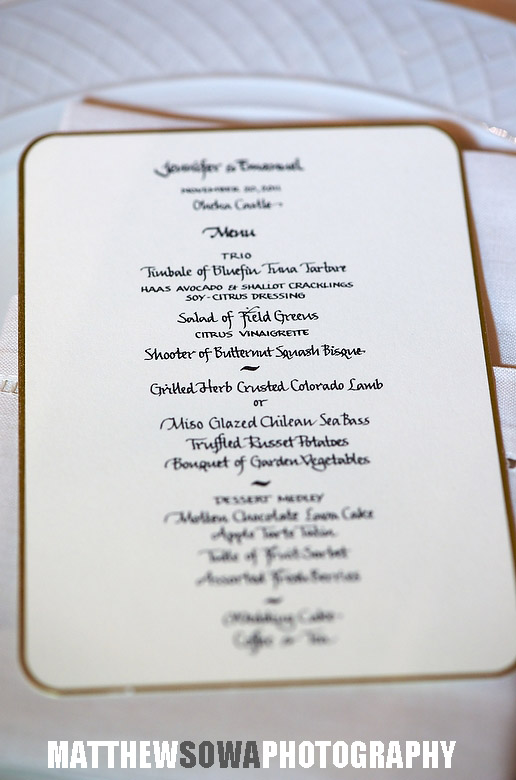 Jennifer & Emanuel
NOVEMBER 20, 2011
Oheka Castle
Menu
TRIO
Timbale of Bluefin Tuna Tartare
HAAS AVOCADO & SHALLOT CRACKLINGS
SOY-CITRUS DRESSING
Salad of Field Greens
CITRUS VINAIGRETTE
Shooter of Butternut Squash Bisque
~
Grilled Herb Crusted Colorado Lamb
or
Miso Glazed Chilean Sea Bass
Truffled Russet Potatoes
Bouquet of Garden Vegetables
~
DESSERT MEDLEY
Molten Chocolate Lava Cake
Apple Tarte Tatin
of Fruit Sorbet
Assorted Fresh Berries
~
Wedding Cake
Coffee or Tea
MATTHEWSOWAPHOTOGRAPHY